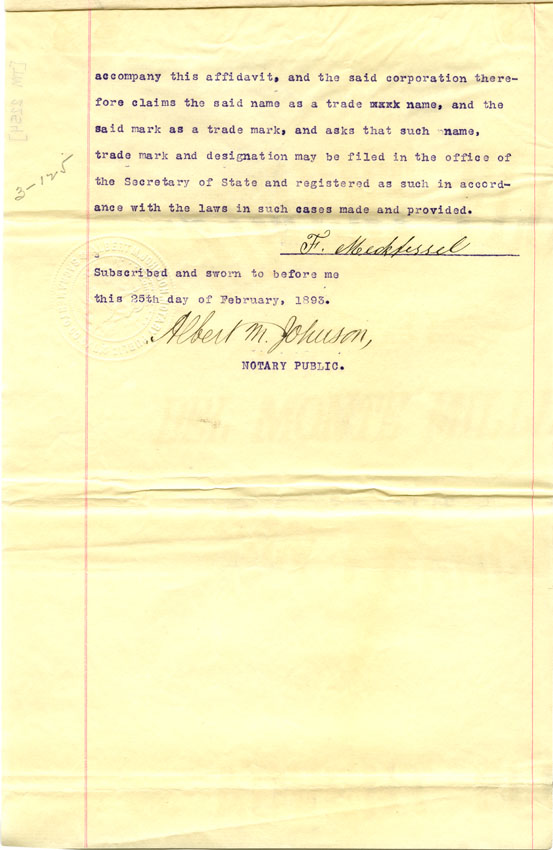 [TM 2254]
3-125
accompany this affidavit, and the said corporation there-
fore claims the said name as a trade xxxx name, and the
said mark as a trade mark, and asks that such name,
trade mark and designation may be filed in the office of
the Secretary of State and registered as such in accord-
ance with the laws in such cases made and provided.
F. Meckfessel
Subscribed and sworn to before me
this 25th day of February, 1893.
Albert M. Johnson,
NOTARY PUBLIC.